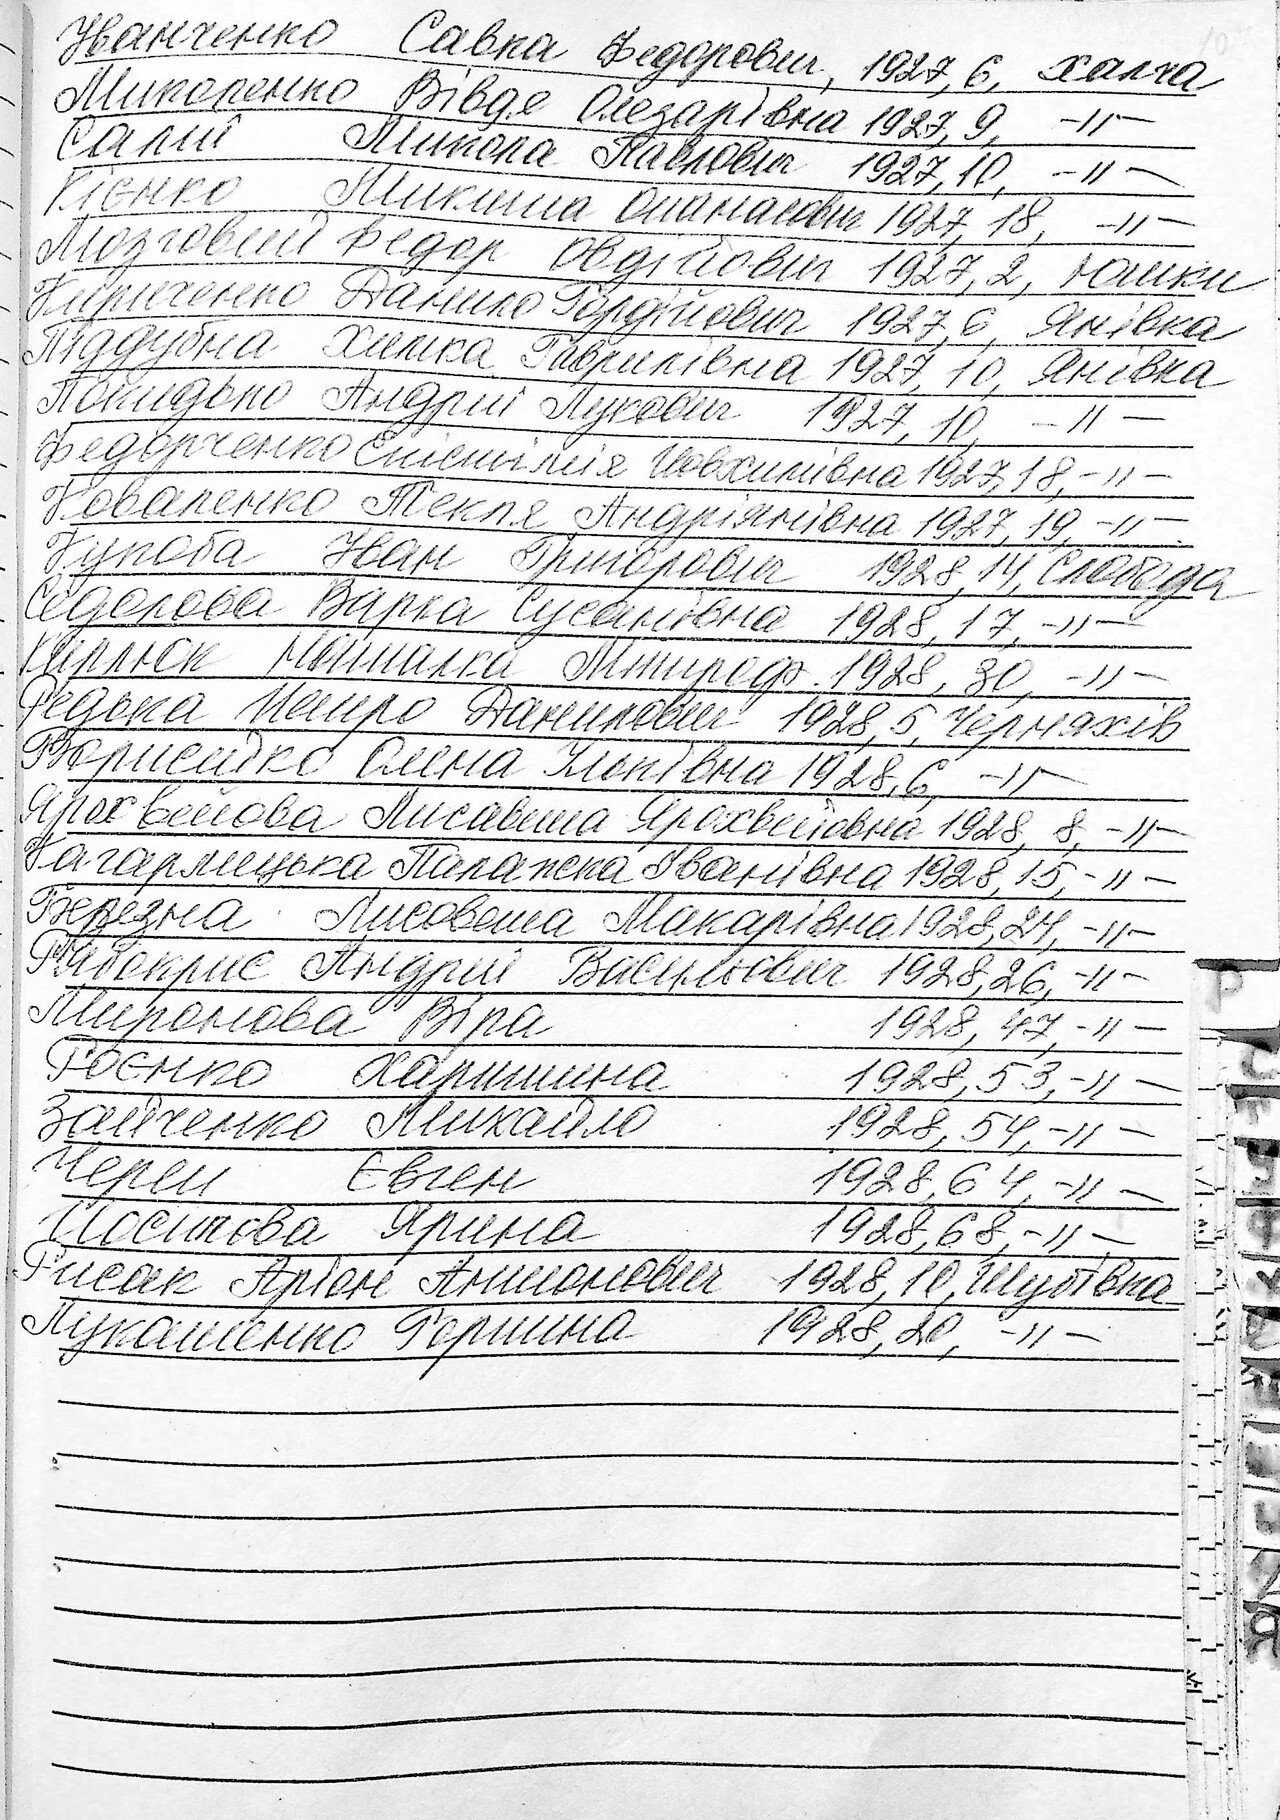 Іванченко Савка Федорович, 1927, 6, Халча
Микоренко Вівдя Олезарівна 1927, 9, -"-
Салій Микола Павлович 1927, 10, -"-
Кієнко Микита Опанасович 1927, 18, -"-
Мозговий Федор Овдійович 1927, 2, Юшки
Кириченко Данило Гордійович 1927, 6, Янівка
Піддубна Химка Гаврилівна 1927, 10, Янівка
Покидько Андрій Лукович 1927, 10, -"-
Федорченко Епістімія Йовхимівна 1927, 18, -"-
Коваленко Текля Андріянівна 1927, 19, -"-
Кукоба Іван Григорович 1928, 14, Слобода
Седорова Варка Сусанівна 1928, 17, -"-
Кірлюк Наталка Митроф. 1928, 30, -"-
Редька Петро Данилович 1928, 5, Черняхів
Борисейко Олена Ільківна 1928, 6, -"-
Ярохвейова Лисавета Ярохвейовна 1928, 8, -"-
Кагарлицька Палажка Іванівна 1928, 15, -"-
Березна Лисовета Макарівна 1928, 24, -"-
Рябокрис Андрій Васильович 1928, 26, -"-
Миронова Віра 1928, 47, -"-
Роєнко Харитина 1928, 53, -"-
Зайченко Михайло 1928, 54, -"-
Череп Євген 1928, 64, -"-
Йосипова Ярина 1928, 68, -"-
Рисак Аріон Антонович 1928, 10, Шубівка
Лукашенко Горпина 1928, 20, -"-